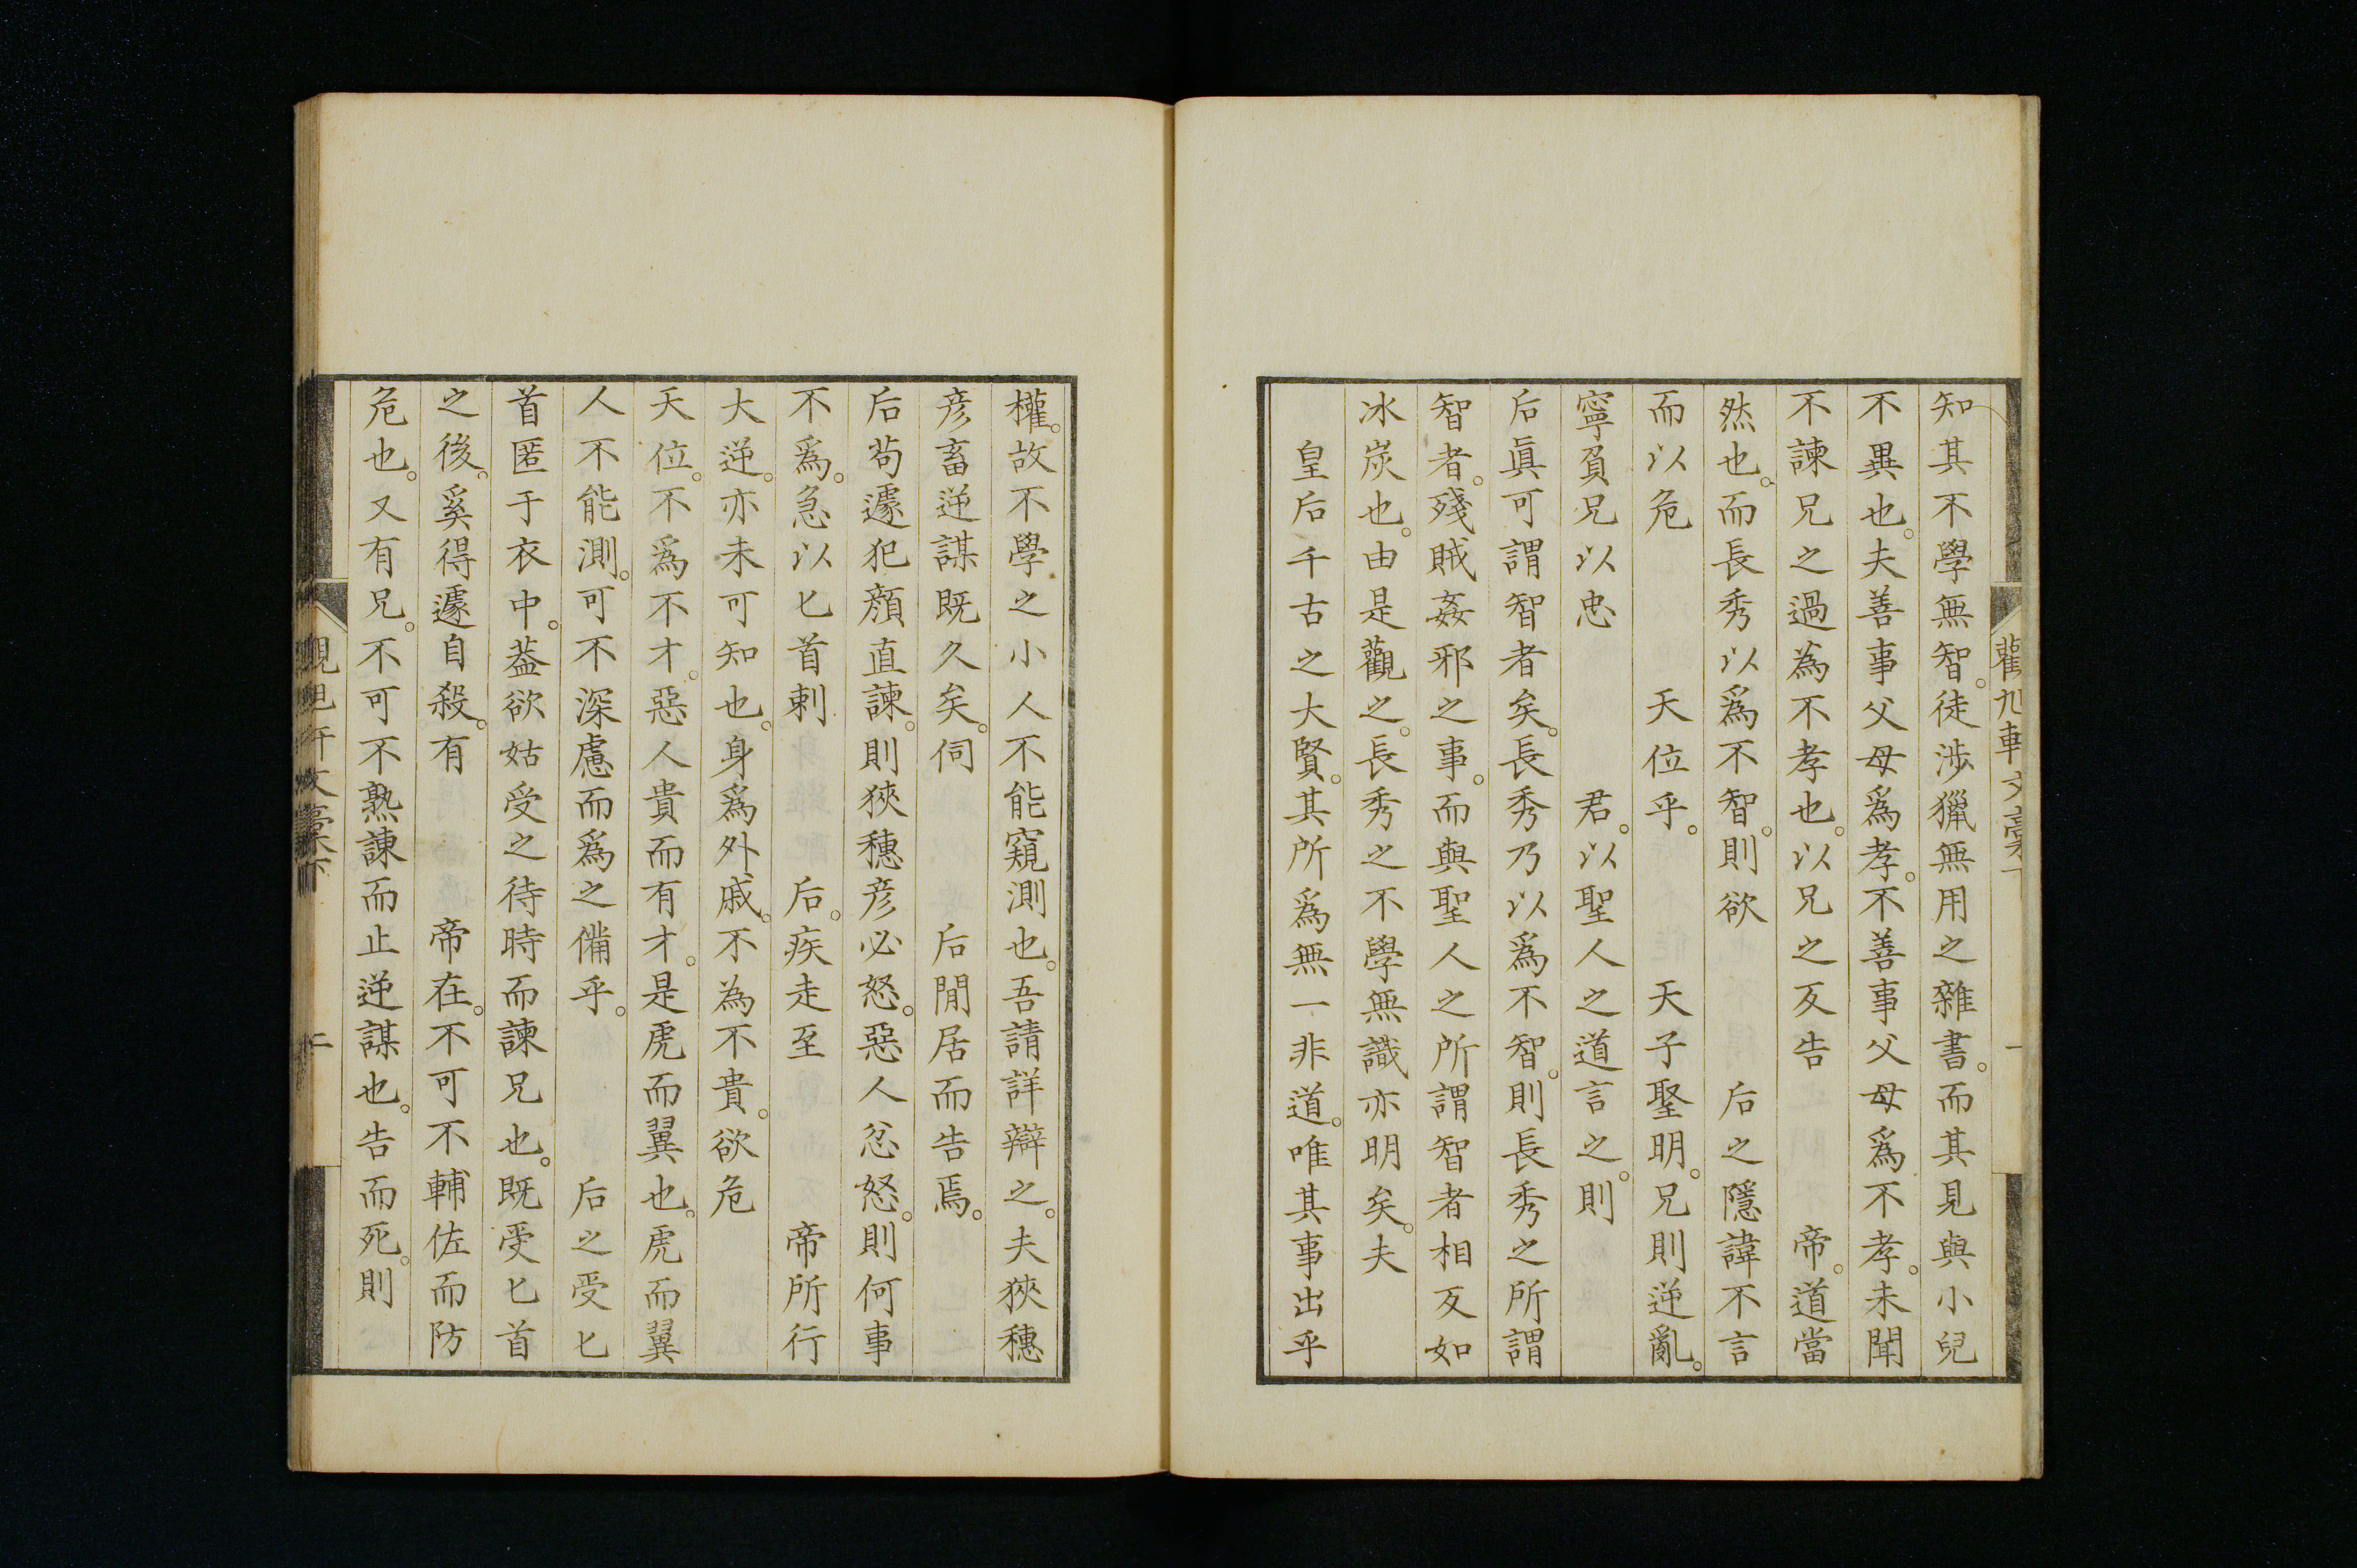 知其不學無智。徒涉獵無用之雜書。而其見與小兒
不異也。夫善事父母爲孝。不善事父母爲不孝。未聞
不諫兄之過為不孝也。以兄之反告　帝。道當
然也。而長秀以爲不智。則欲　后之隱諱不言
而以危　天位乎。　天子聖明。兄則逆亂。
寧負兄以忠　君。以聖人之道言之。則
后眞可謂智者矣。長秀乃以爲不智。則長秀之所謂
智者。殘賊姦邪之事。而與聖人之所謂智者相反如
冰炭也。由是觀之。長秀之不學無識亦明矣。夫
皇后千古之大賢。其所爲無一非道。唯其事出乎
權。故不學之小人不能窺測也。吾請詳辯之。夫狹穗
彦畜逆謀既久矣。伺　后閒居而告焉。
后茍遽犯顏直諫。則狹穗彦必怒。惡人忿怒。則何事
不爲。急以匕首剌　后。疾走至　帝所行
大逆。亦未可知也。身爲外戚。不為不貴。欲危
天位。不爲不才。惡人貴而有才。是虎而翼也。虎而翼
人不能測。可不深慮而爲之備乎。　后之受匕
首匿于衣中。葢欲姑受之待時而諫兄也。既受匕首
之後。奚得遽自殺。有　帝在。不可不輔佐而防
危也。又有兄。不可不熟諫而止逆謀也。告而死。則
二